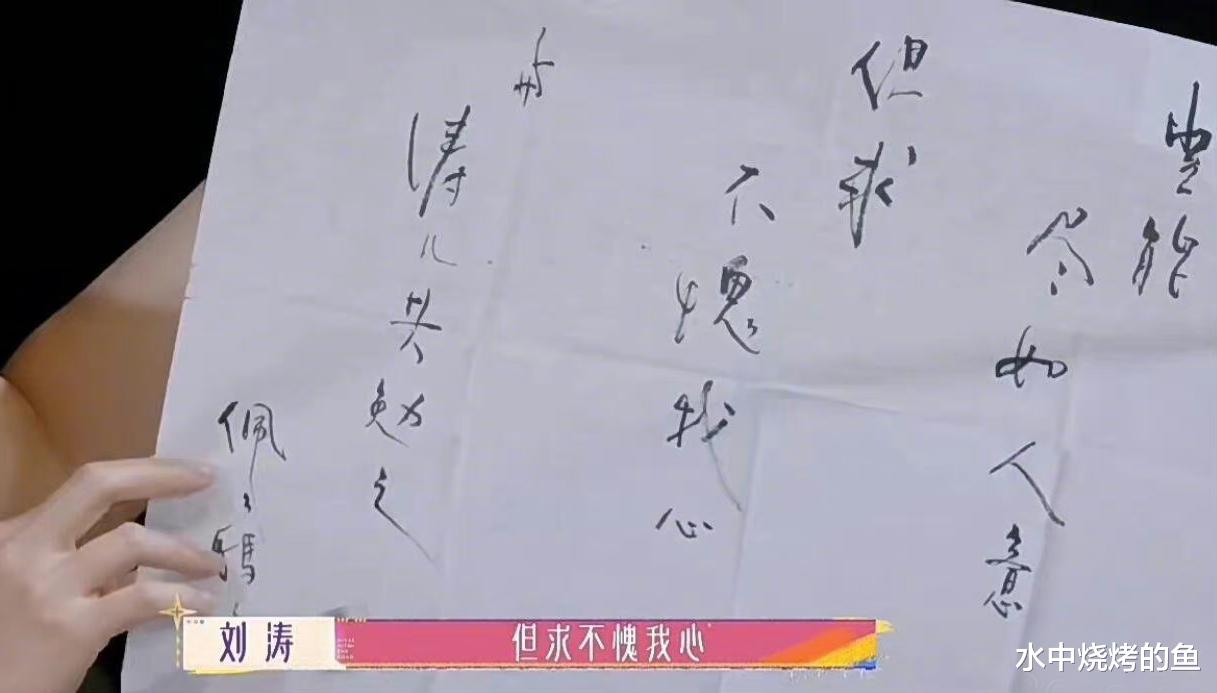 岂能
尽如人意
但求
不愧我心
与
涛儿共勉之
佩佩
刘涛
但求不愧我心
水中烧烤的鱼